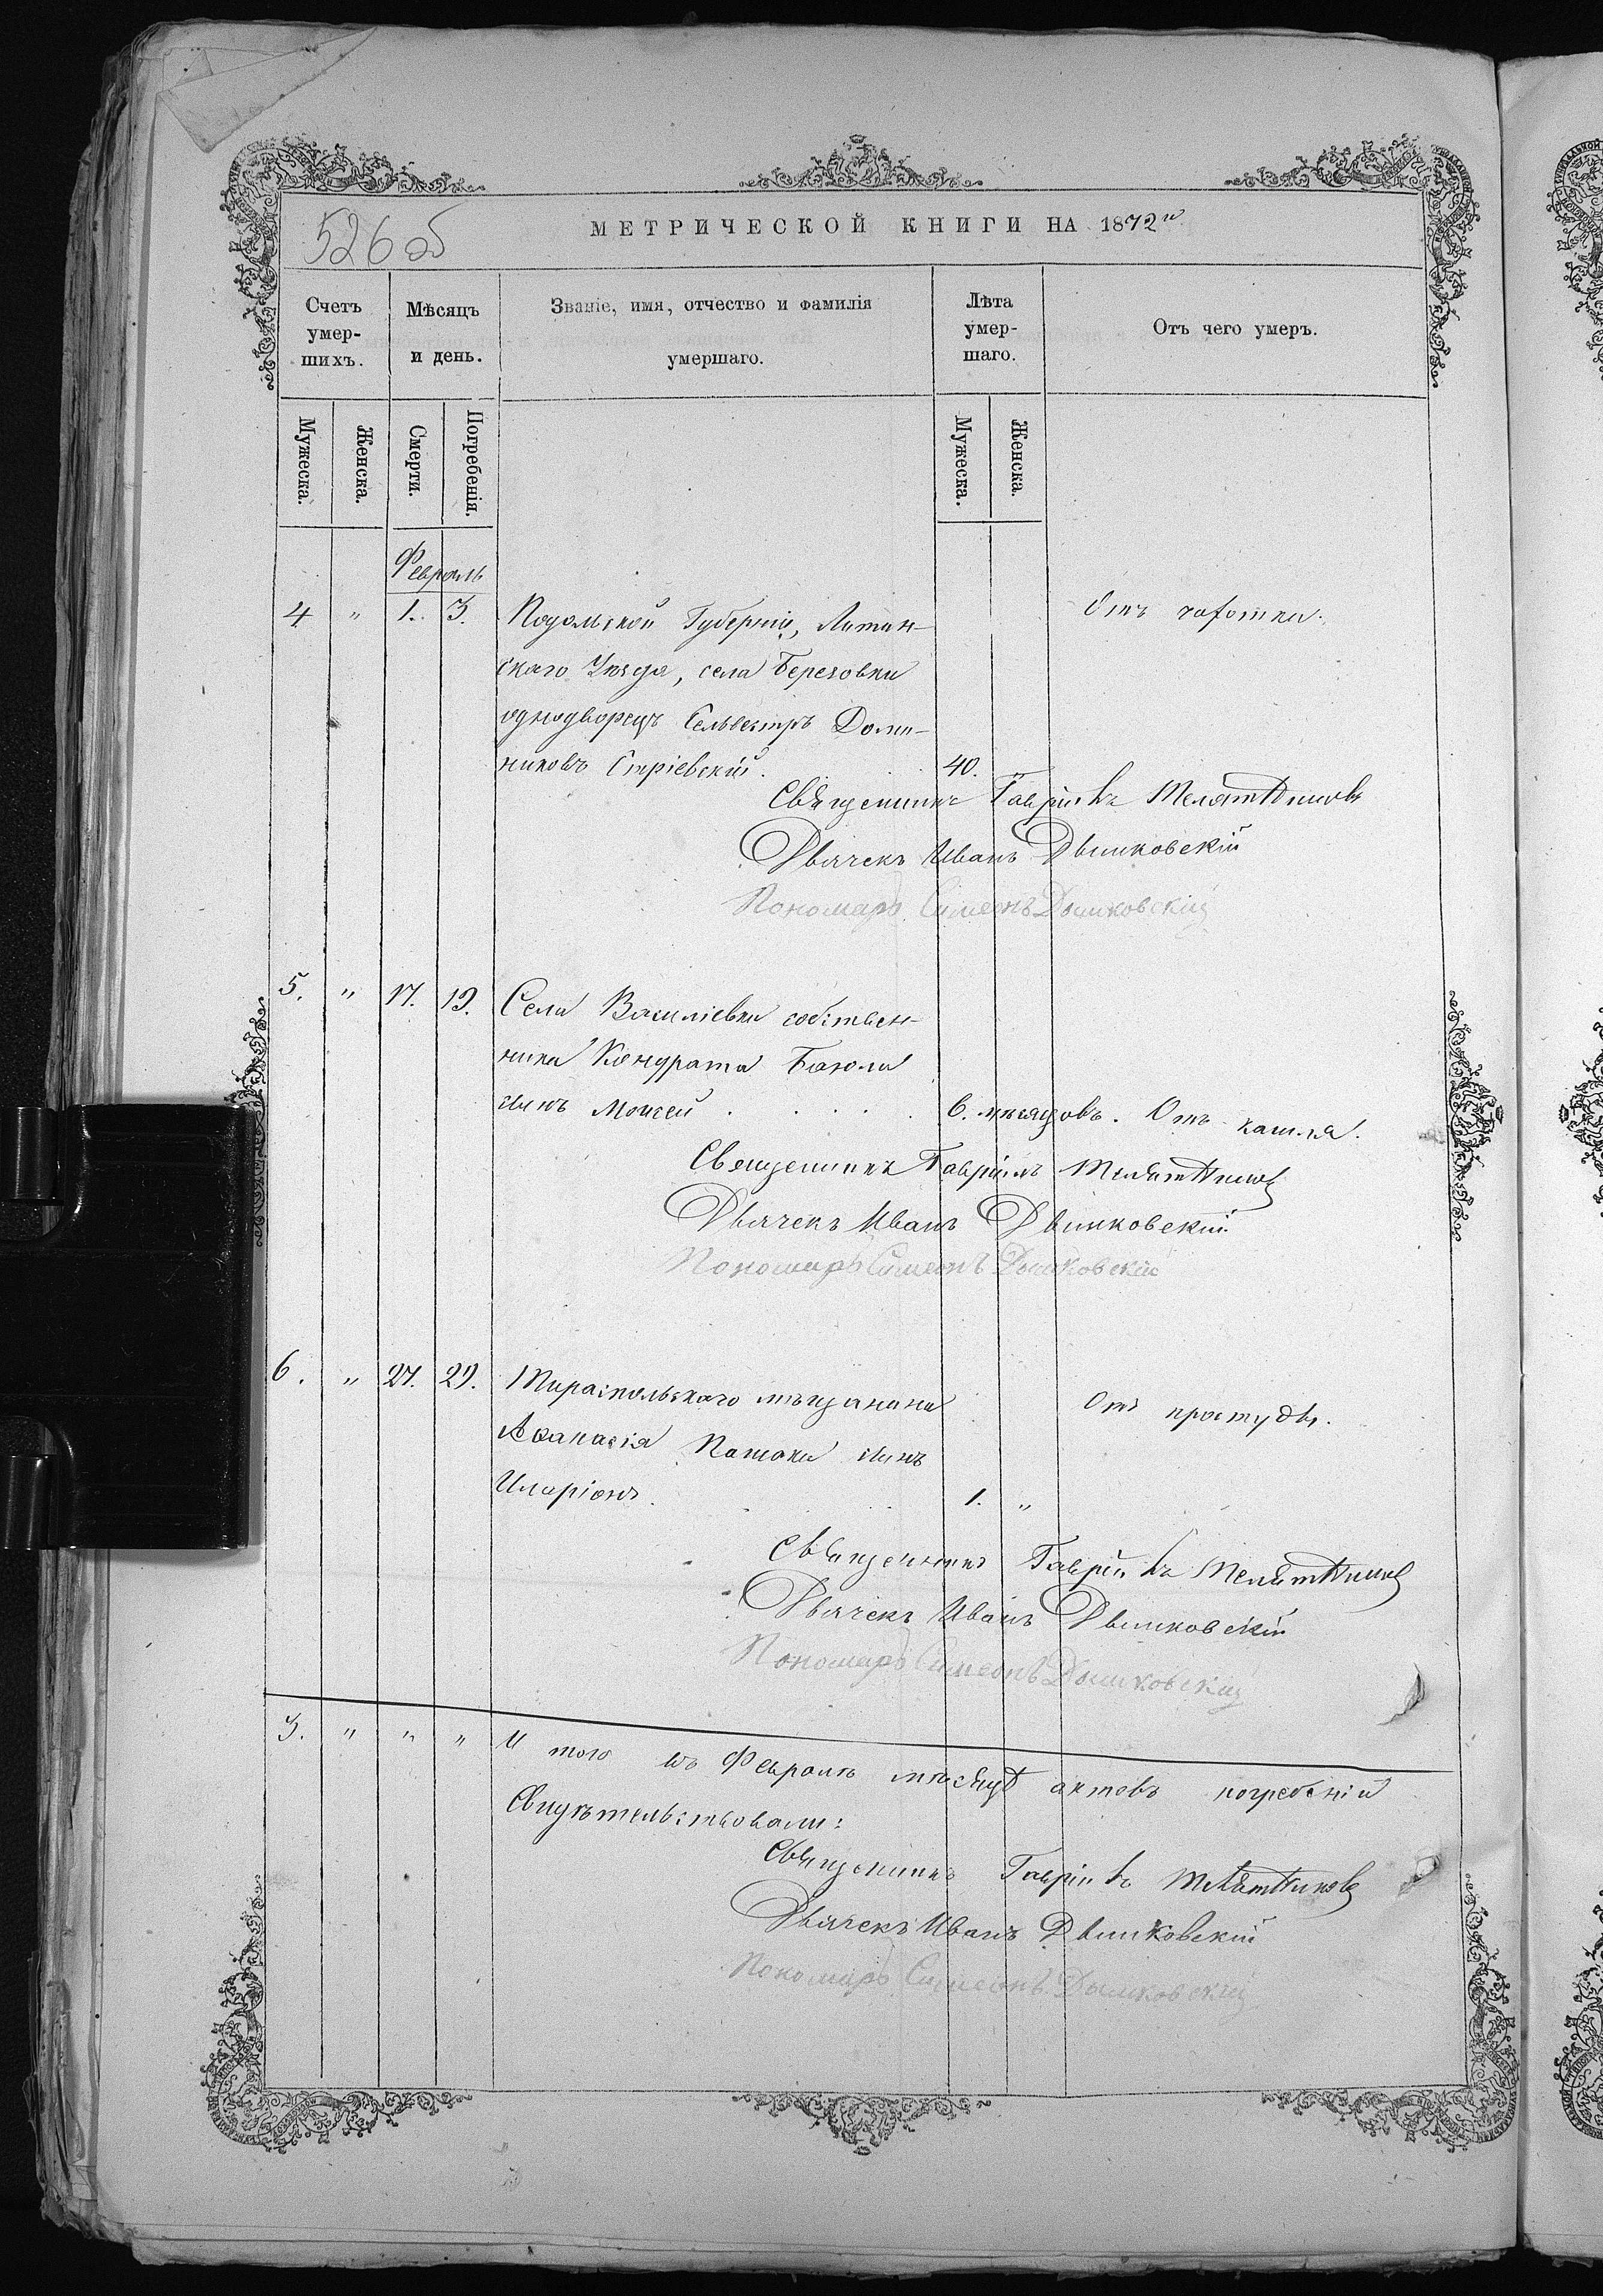 526 об
МЕТРИЧЕСКОЙ КНИГИ НА 1872й
Счетъ умер-шихъ.
Мѣсяцъ и день.
Званіе, имя, отчество и фамилія умершаго.
Лѣта умер-шаго.
Отъ чего умеръ.
Мужеска.
Женска.
Смерти.
Погребенія.
Мужеска.
Женска.
Февраль
4. " 1. 3. Подольской Губерніи, Литин- Отъ чахотки.
скаго Уѣзда, села Березовки
однодворецъ Сельвестръ Доми-
никовъ Стріевскій. 40.
Священникъ Гавріилъ
Дьячекъ Иванъ Дымковскій
Пономарь Симеонъ Дымковскій
5. " 17. 19. Села Василіевки собствен-
ника Кондрата Баюла
сынъ Моисей . . . . . 6. мѣсяцовъ. Отъ кашля.
Священникъ Гавріилъ
Дьячекъ Иванъ Дымковскій
Пономарь Симеонъ Дымковскій
6. " 27. 29. Тираспольскаго мѣщанина Отъ простуды.
Аѳанасія Патоки сынъ
Иларіонъ. 1. "
Священникъ Гавріилъ
Дьячекъ Иванъ Дымковскій
Пономарь Симеонъ Дымковскій
3. " " " И того въ Февралѣ мѣсяцѣ актовъ погребеній
Свидѣтельствовали:
Священникъ Гавріилъ
Дьячекъ Иванъ Дымковскій
Пономарь Симеонъ Дымковскій